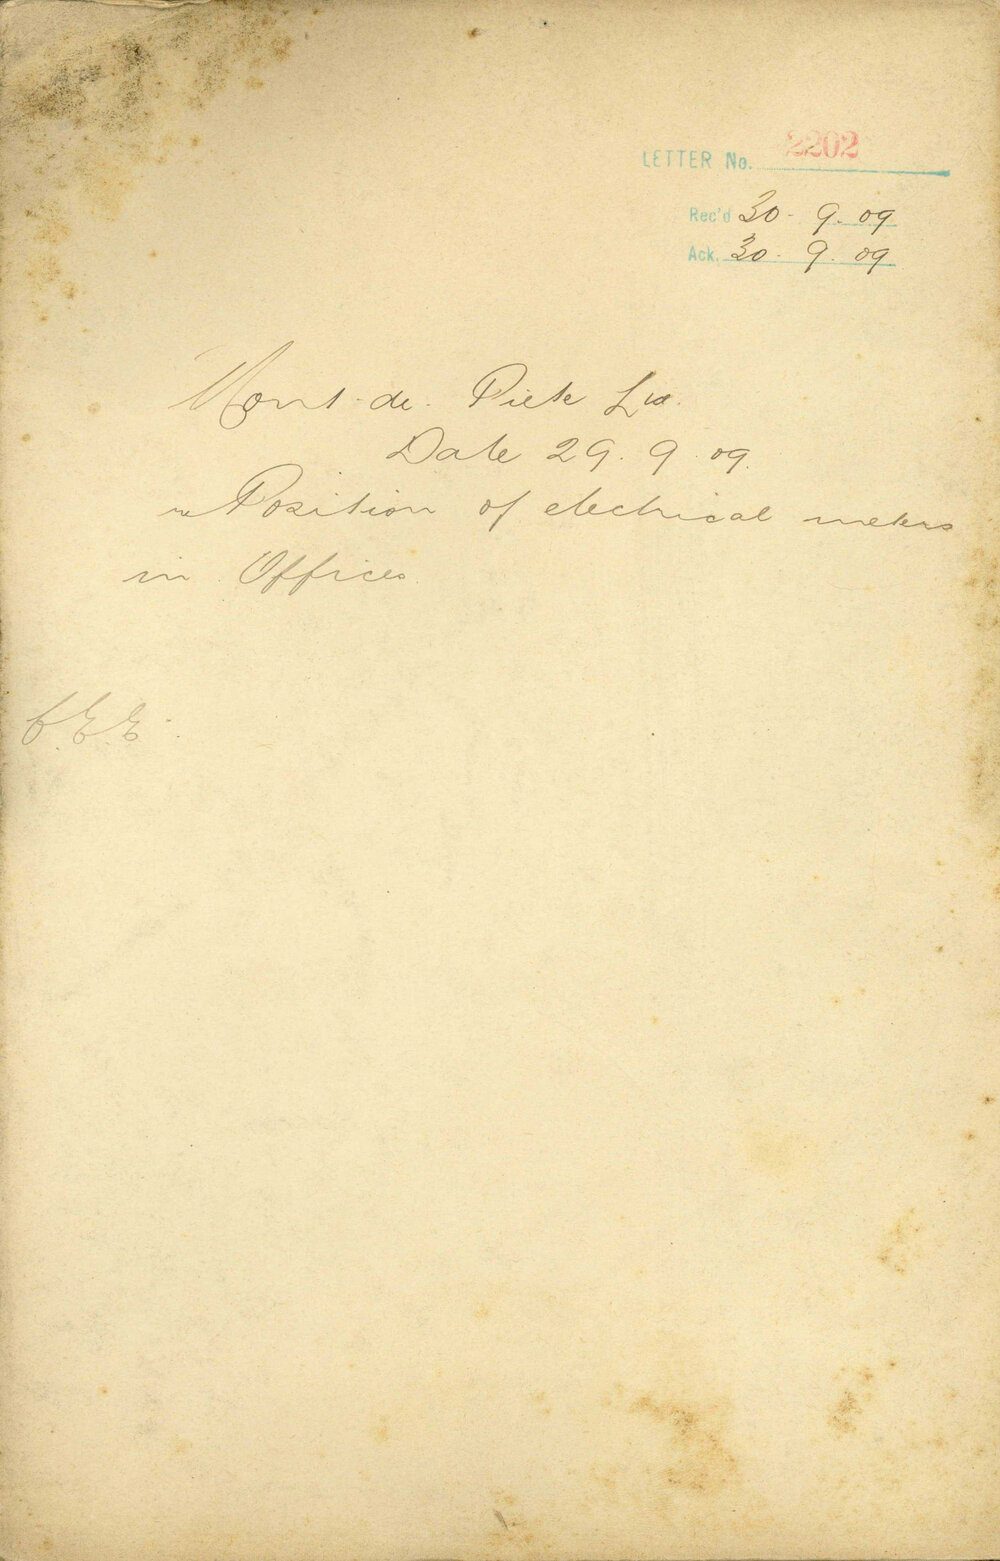 LETTER No. 2202
Rec'd 30 - 9. 09
Ack. 30 - 9. 09
Mont-de-Piete Ltd.
Date 29. 9. 09.
re Position of electrical meters
in Offices.